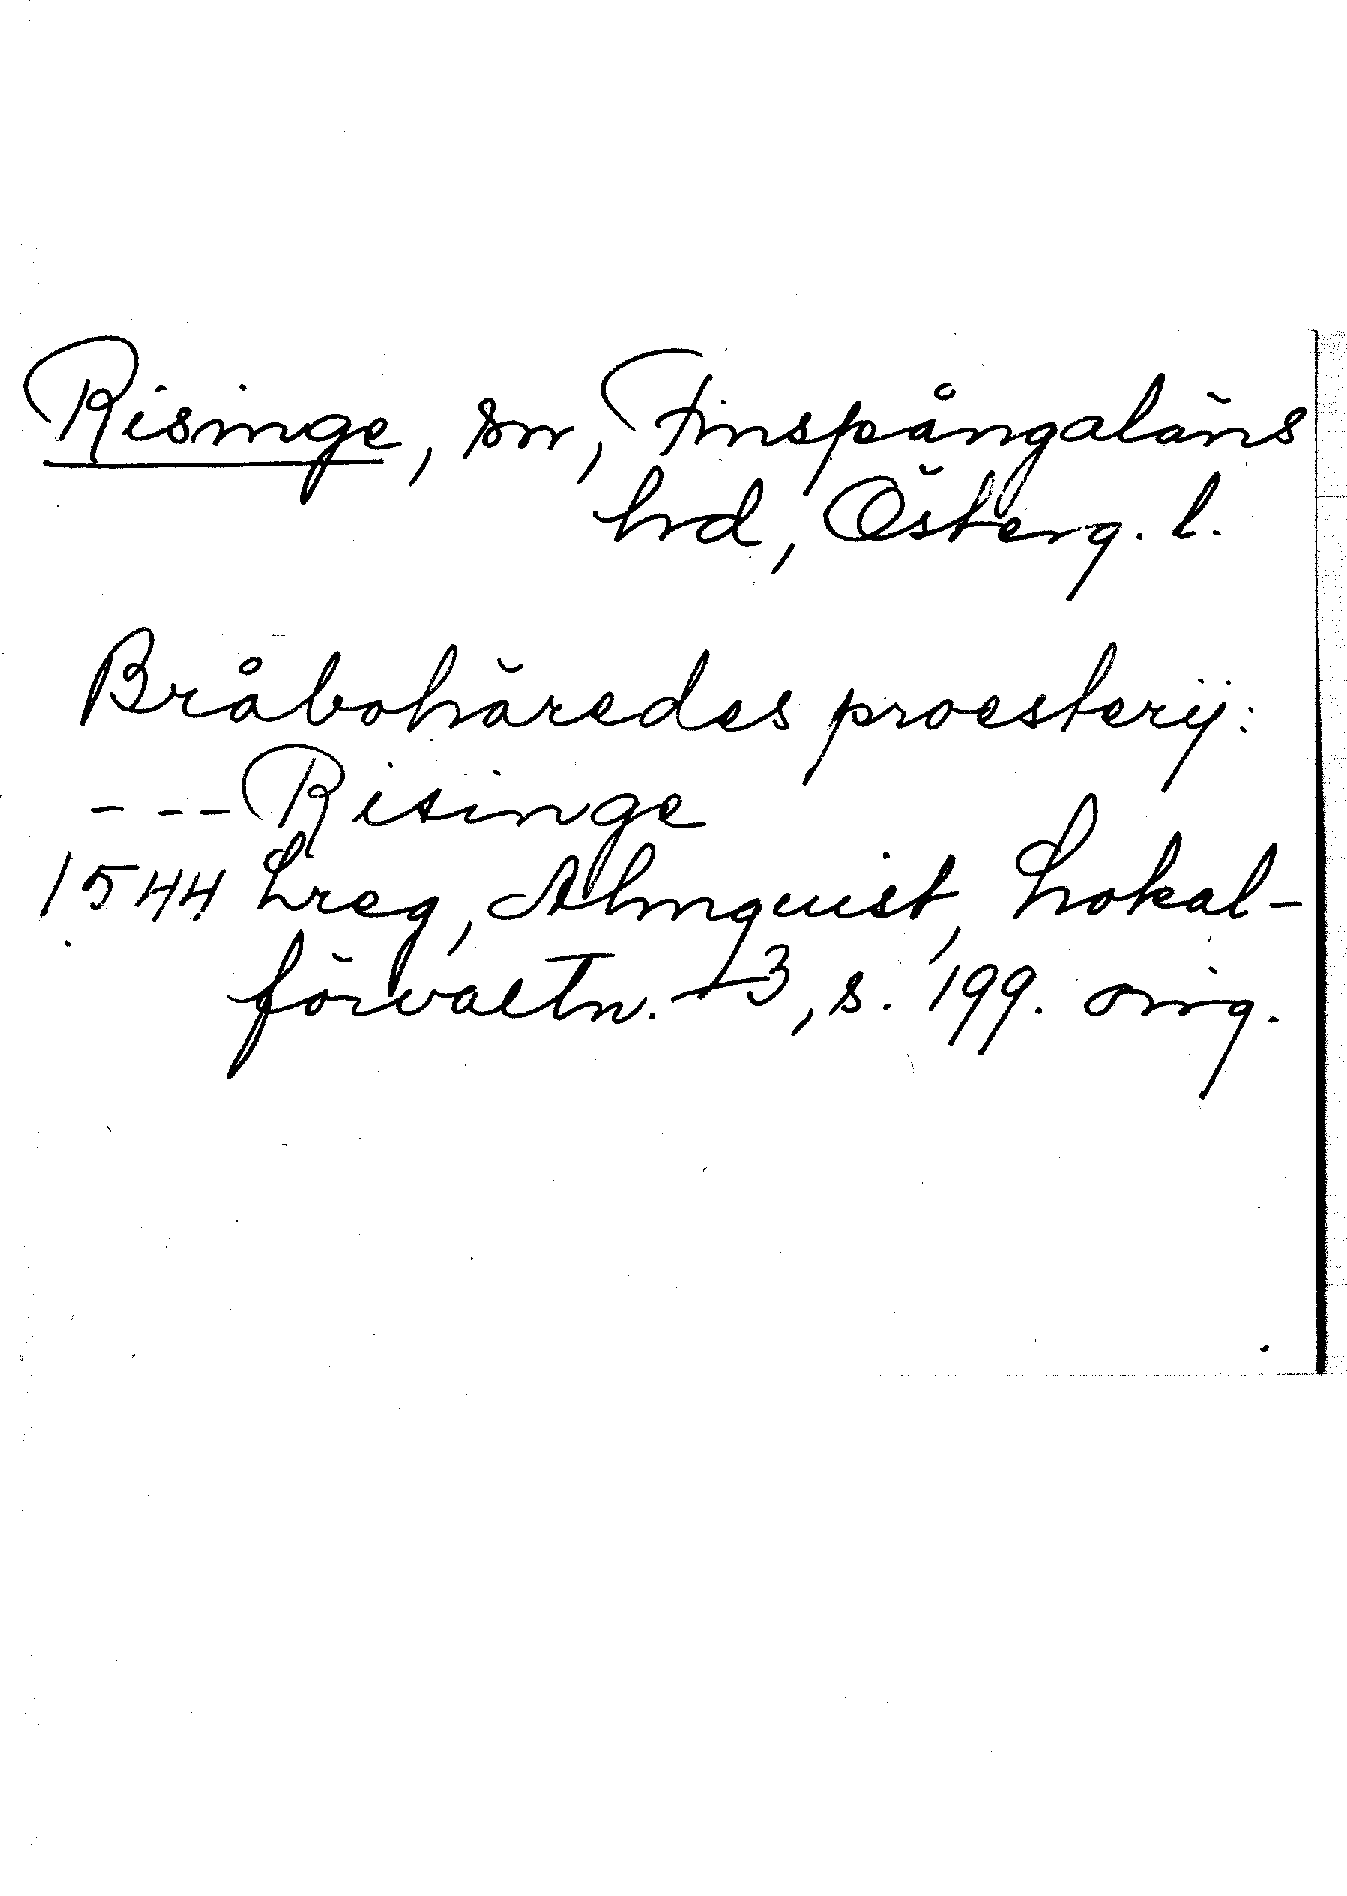 Risinge, sn, Finspångaläns
hrd, Österg. l.
Bråbohäredes proesterij:
- - - Risinge
1544 Lreg, Almquist, Lokal-
förvaltn. 3, s. 199. orig.